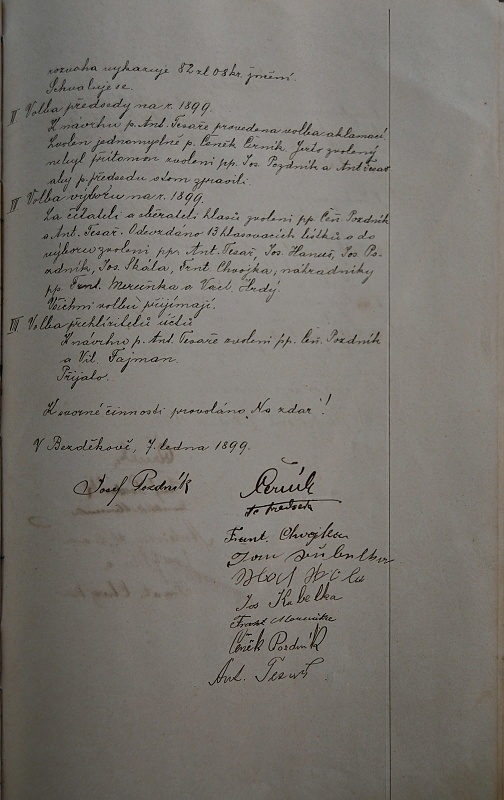 rozvaha vykazuje 82 zl 08 kr. jmění.
Schvaluje se.
V Volba předsedy na r. 1899.
K návrhu p. Ant. Tesaře provedena volba aklamací
Zvolen jednomyslně p. Čeněk Černík. Jezto zvolený
nebyl přítomen zvoleni pp. Jos. Pozdník a Ant. Tesař
aby p. předsedu o tom zpravili.
VI Volba výboru na r. 1899.
Za čitatele a sběratele hlasů zvoleni pp. Čeň. Pozdník
a Ant. Tesař. Odevzdáno 13 hlasovacích lístků a do
výboru zvoleni pp. Ant. Tesař, Jos. Hanuš, Jos. Po-
zdník, Jos. Skála, Frnt Chvojka, náhradníky
pp. Frnt. Merenka a Václ. Hrdý.
Všichni volbu přijímají.
VII Volba přehlížitelů účtů
K návrhu p. Ant. Tesaře zvoleni pp. Čeň. Pozdník
a Vil. Fajman.
Přijato.
K svorné činnosti provoláno „Na zdar"!
V Bezděkově, 7. ledna 1899.
Josef Pozdník Černík
předseda
Frant. Chvojka
Jos Kubelka
Frant
Čeněk Pozdník
Ant. Tesař